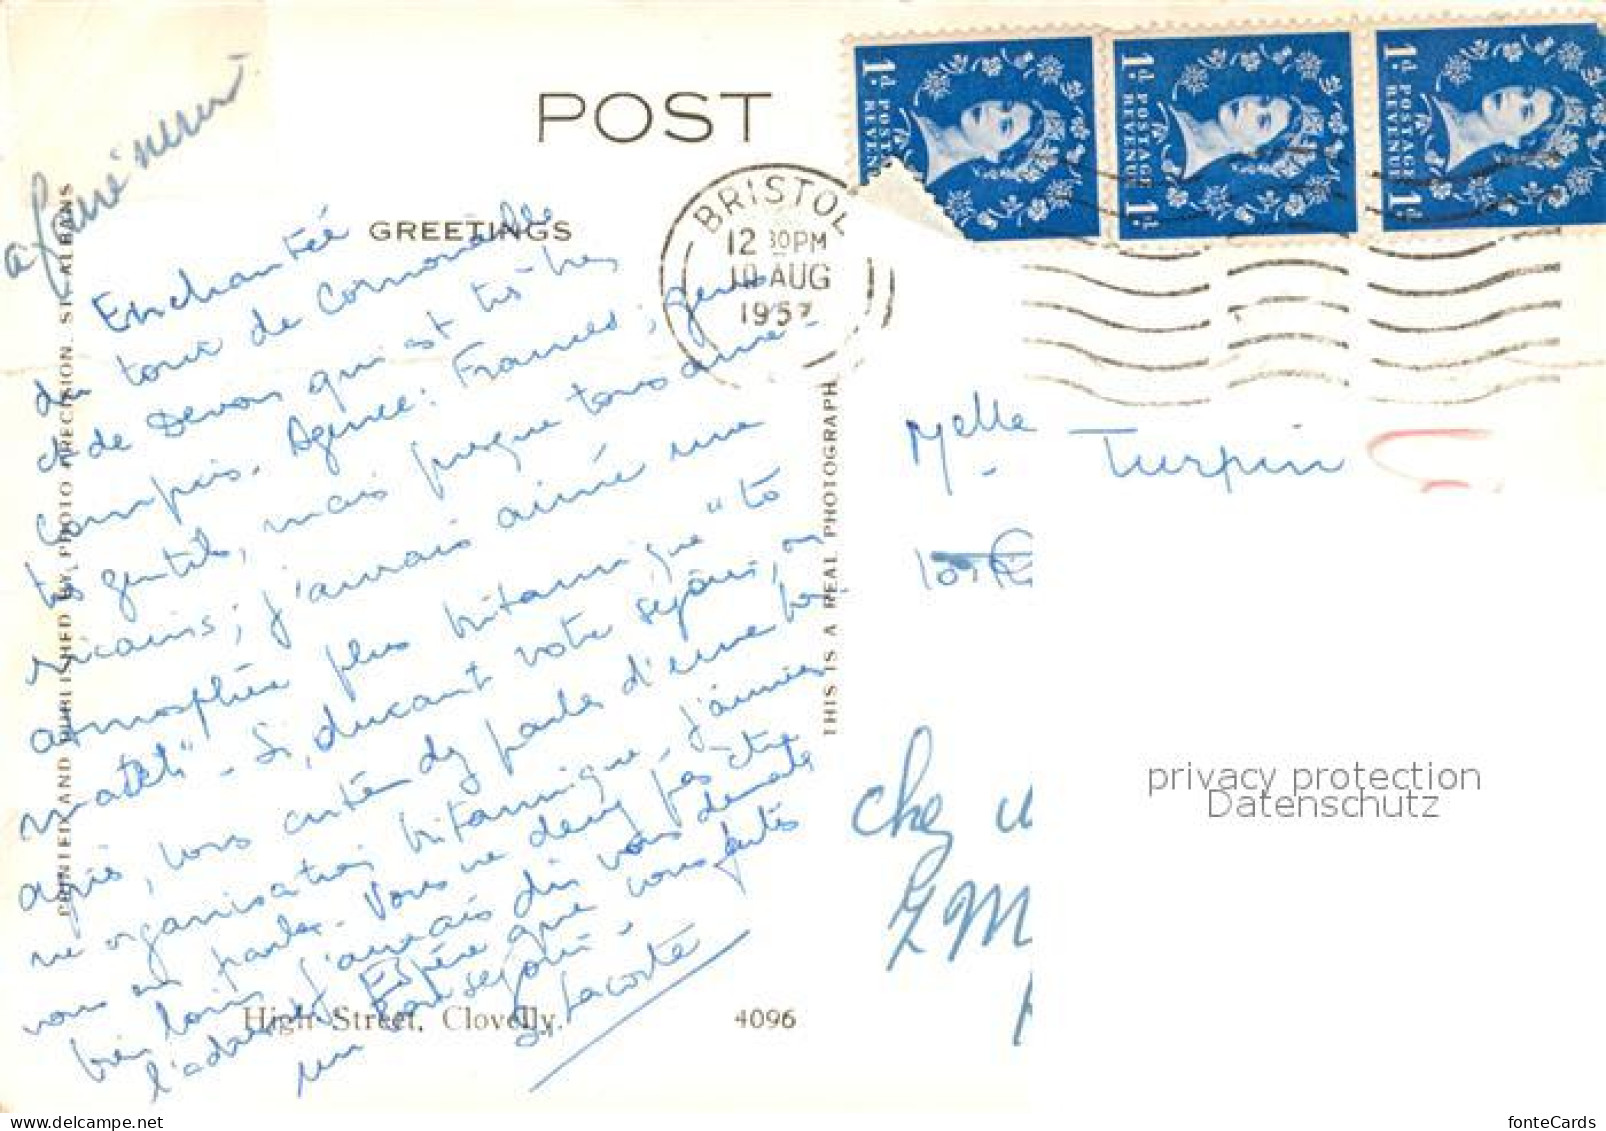 POST
GREETINGS
BRISTOL
12 30PM
10 AUG
1957
1d. POSTAGE REVENUE 1d.
1d. POSTAGE REVENUE 1d.
1d. POSTAGE REVENUE 1d.
Enchantée
du tour de Cornouailles
& de Devon qui est très bien
compris. Agence: Frames; gens
très gentils, mais presque tous amé-
ricains; j'aurais aimé une
atmosphère plus britannique "to
match" - Si, durant votre séjour, ou
après, vous entendez parler d'une bon
ne organisation britannique, j'aimerais
vous en parler. Vous ne devez pas être
bien loin, j'aurais dû vous demander
l'adresse. Espère que vous faites
un bon séjour.
S. Lacoste
Melle Turpin
chez
PRINTED AND PUBLISHED BY PHOTO PRECISION. ST. ALBANS
THIS IS A REAL PHOTOGRAPH
High Street, Clovelly.
4096
privacy protection
Datenschutz
fonteCards